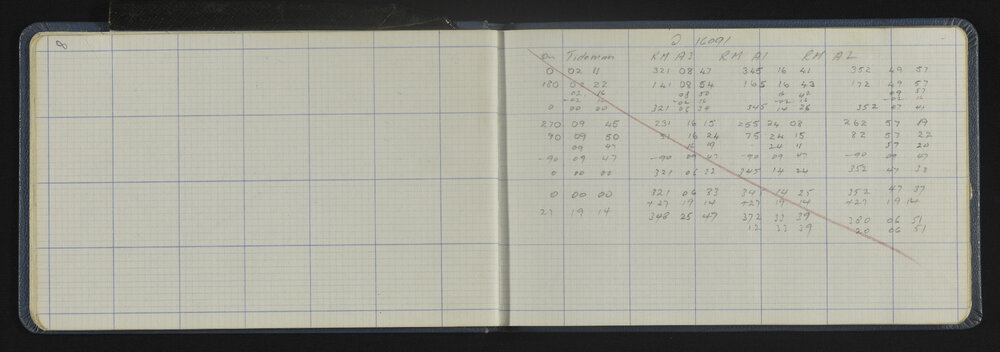 8
16091
On Tideman RM A3 RM A1 RM A2
0 02 11 321 08 47 345 16 41 352 49 57
180 02 22 141 08 54 165 16 43 172 49 57
02 16 08 50 16 42 09 57
-02 16 -02 16 -02 16 -02 16
0 00 00 321 06 34 345 14 26 352 47 41
270 09 45 231 16 15 255 24 08 262 57 19
90 09 50 51 16 24 75 24 15 82 57 22
09 47 16 19 24 11 57 20
-90 09 47 -90 09 47 -90 09 47 -90 09 47
0 00 00 321 06 32 345 14 24 352 47 33
0 00 00 321 06 33 345 14 25 352 47 37
+27 19 14 +27 19 14 +27 19 14
27 19 14 348 25 47 372 33 39 380 06 51
12 33 39 20 06 51